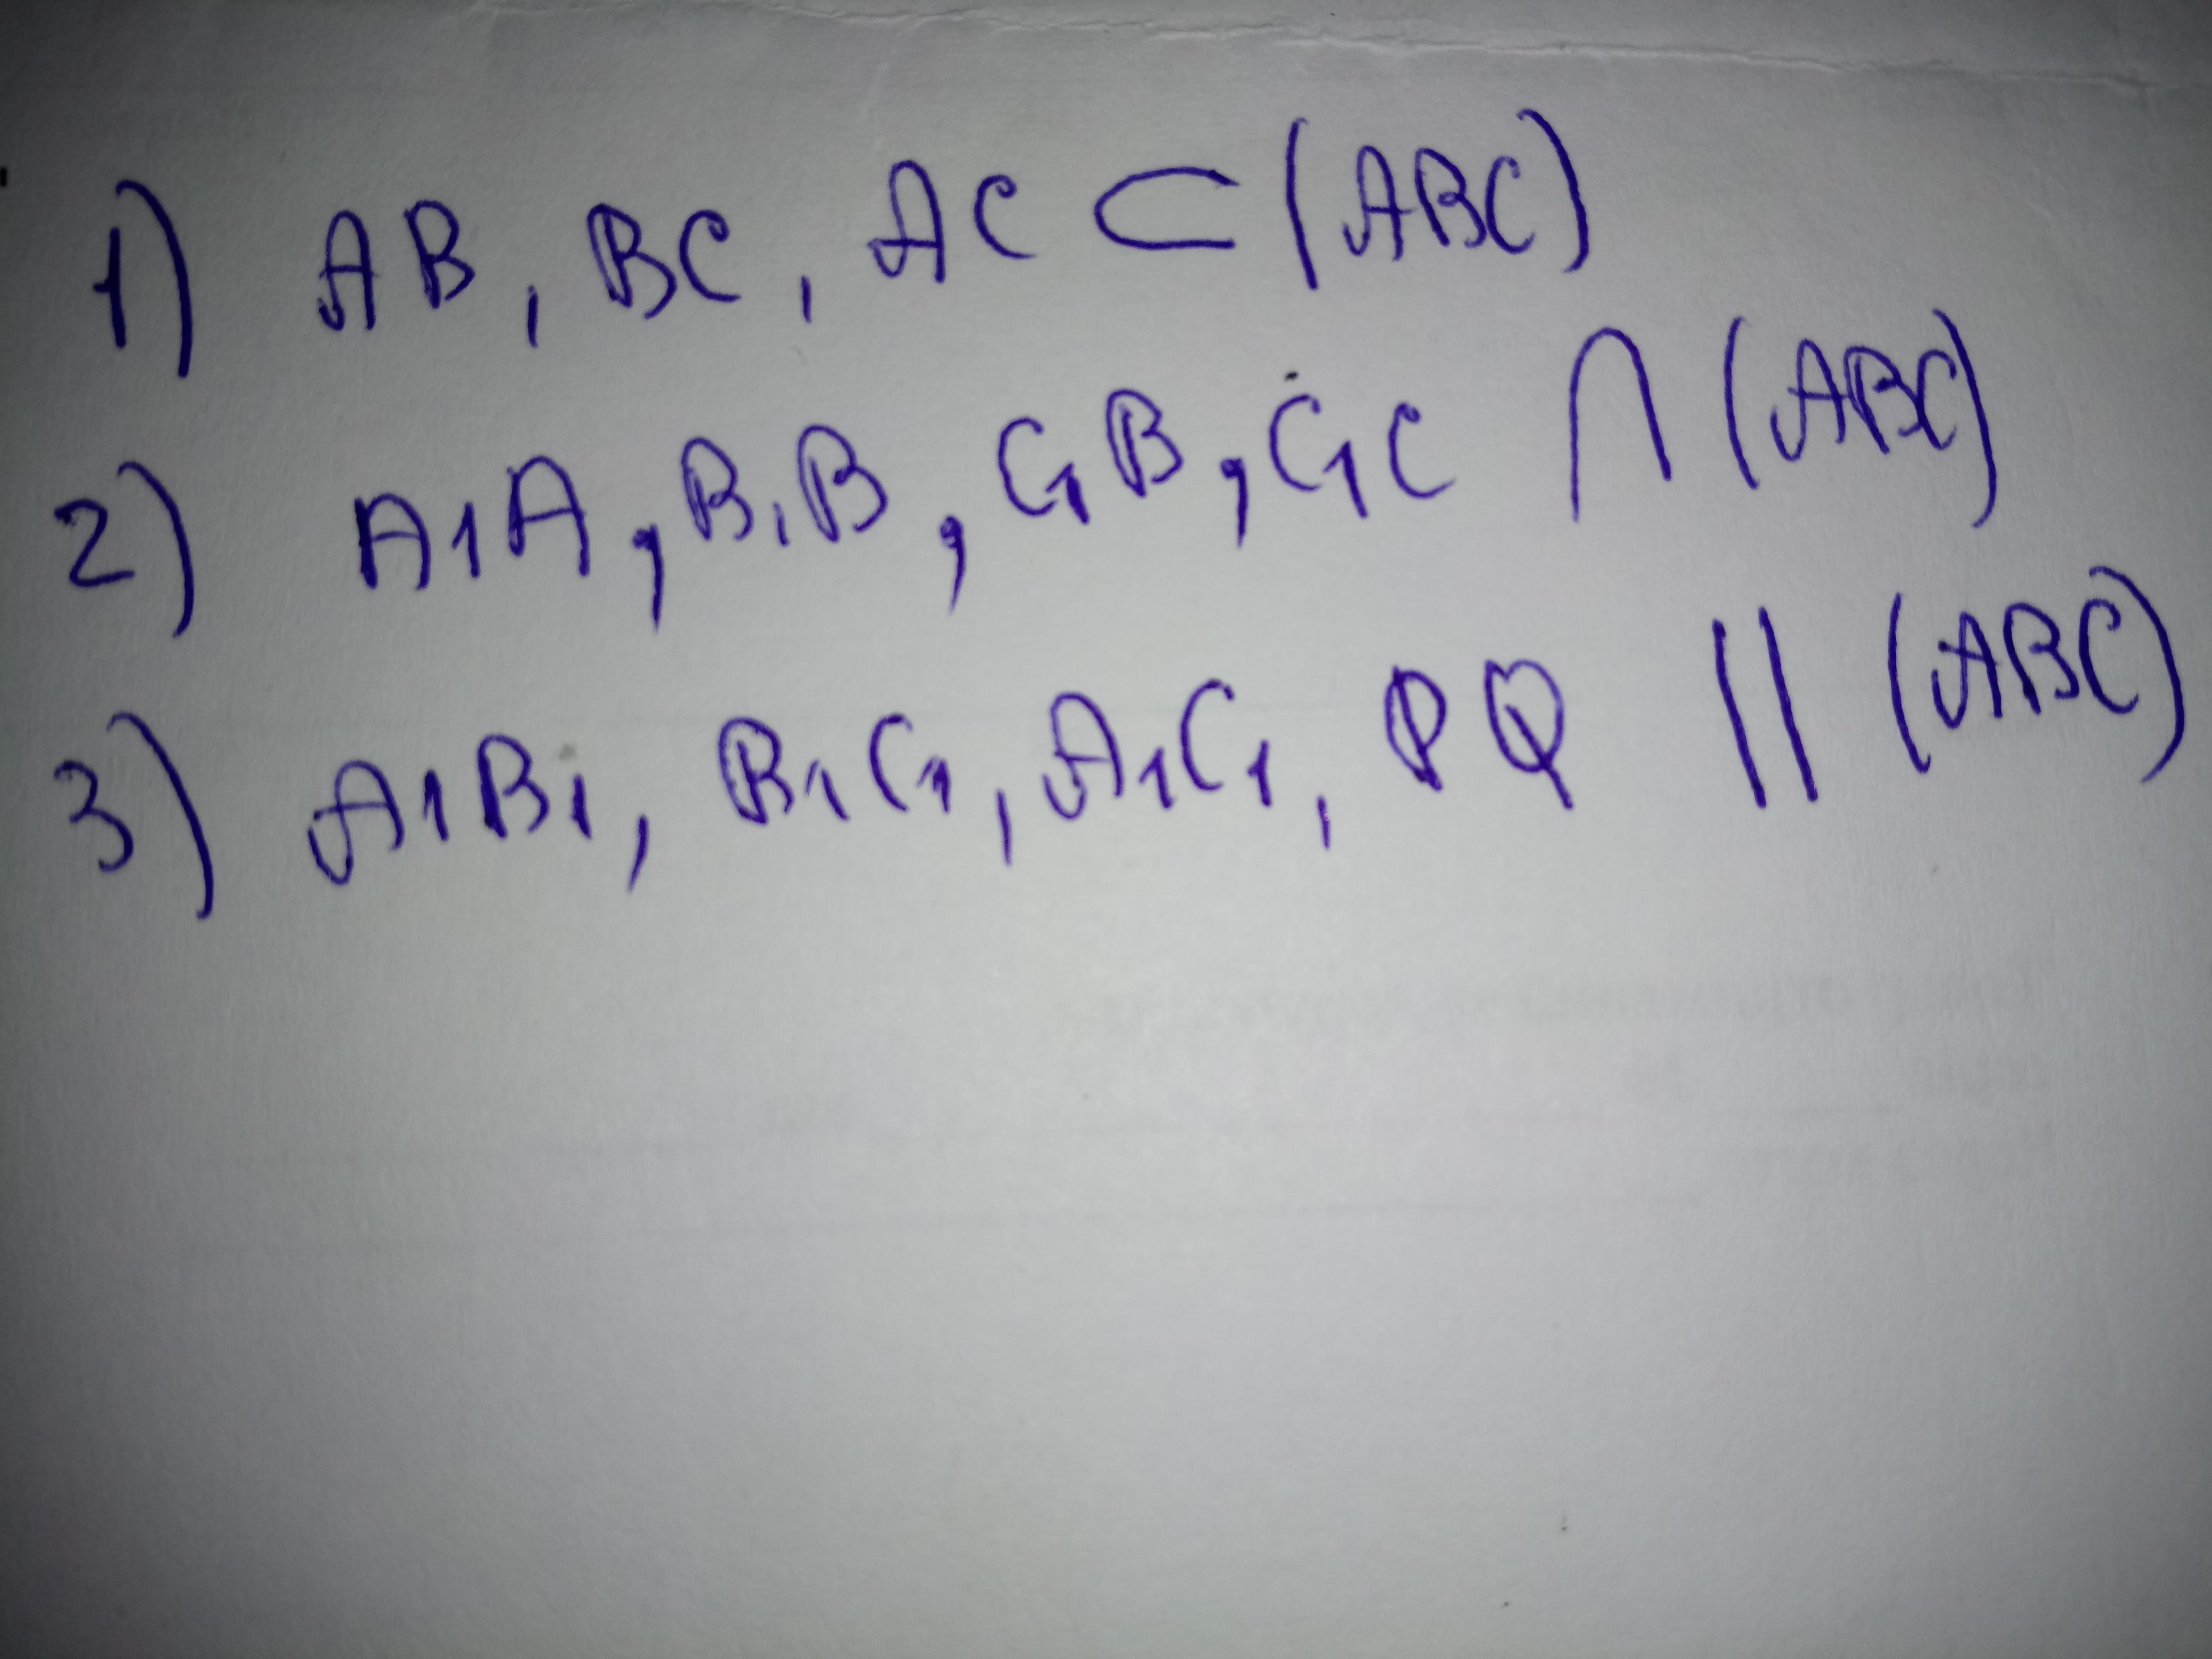 1) AB, BC, AC ⊂ (ABC)
2) A1A, B1B, C1B, C1C ∩ (ABC)
3) A1B1, B1C1, A1C1, PQ || (ABC)